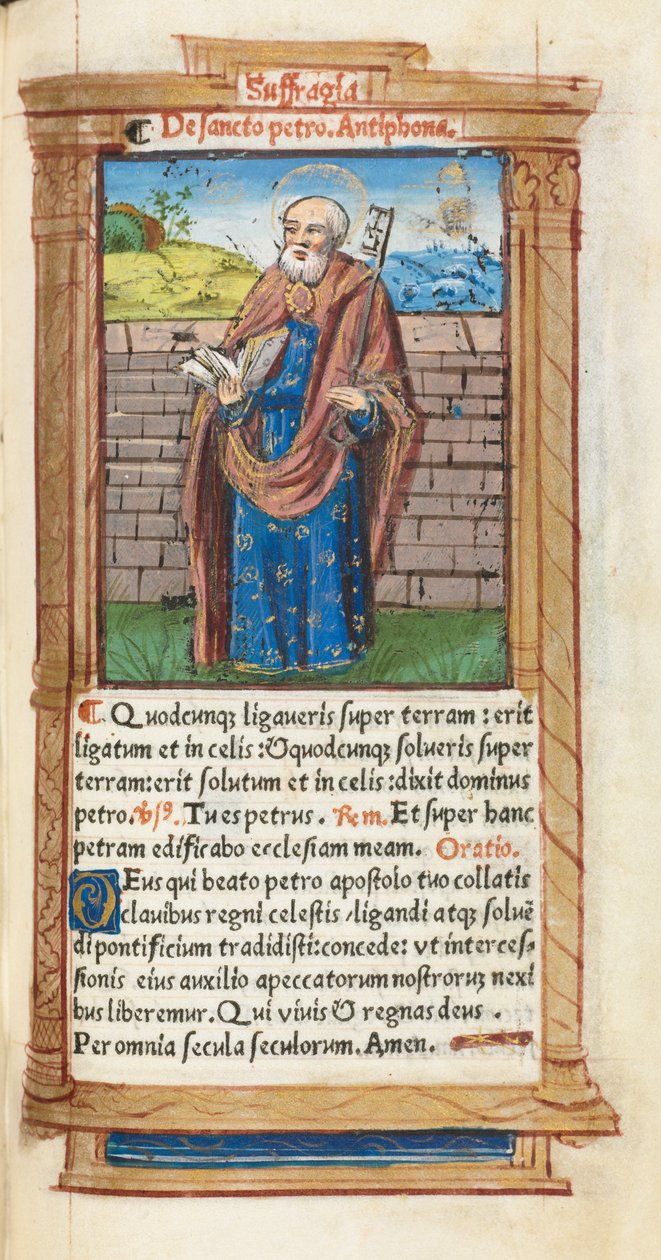 Suffragia
¶ De sancto petro. Antiphona.
¶ Quodcunqꝫ ligaueris ſuper terram : erit
ligatum et in celis : ⁊ quodcunqꝫ ſolueris ſuper
terram: erit ſolutum et in celis : dixit dominus
petro. v̓ſꝰ. Tu es petrus . Reſp̄. Et ſuper hanc
petram edificabo eccleſiam meam. Oratio.
DEus qui beato petro apoſtolo tuo collatis
clauibus regni celeſtis / ligandi atqꝫ ſoluē
di pontificium tradidiſti: concede: vt interceſ⸗
ſionis eius auxilio a peccatorum noſtroruꝫ nexi
bus liberemur. Qui viuis ⁊ regnas deus .
Per omnia ſecula ſeculorum. Amen.